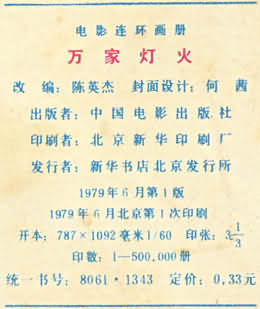 电影连环画册
万家灯火
改编：陈英杰 封面设计：何茜
出版者：中国电影出版社
印刷者：北京新华印刷厂
发行者：新华书店北京发行所
1979年6月第1版
1979年6月北京第1次印刷
开本：787×1092毫米1/60 印张：3 1/3
印数：1—500,000册
统一书号：8061·1343 定价：0.33元